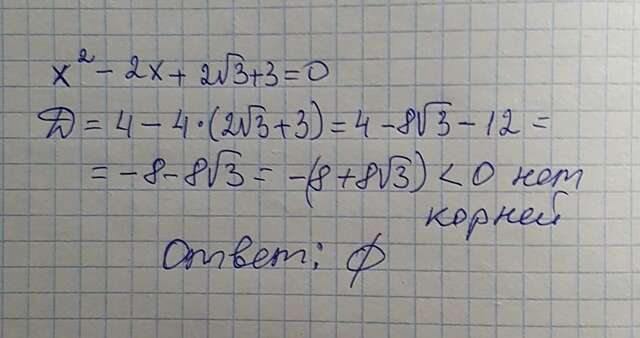 x² - 2x + 2√3+3=0
D = 4 - 4·(2√3+3) = 4 - 8√3 - 12 =
= -8-8√3 = -(8+8√3) < 0 нет
корней
Ответ: ϕ